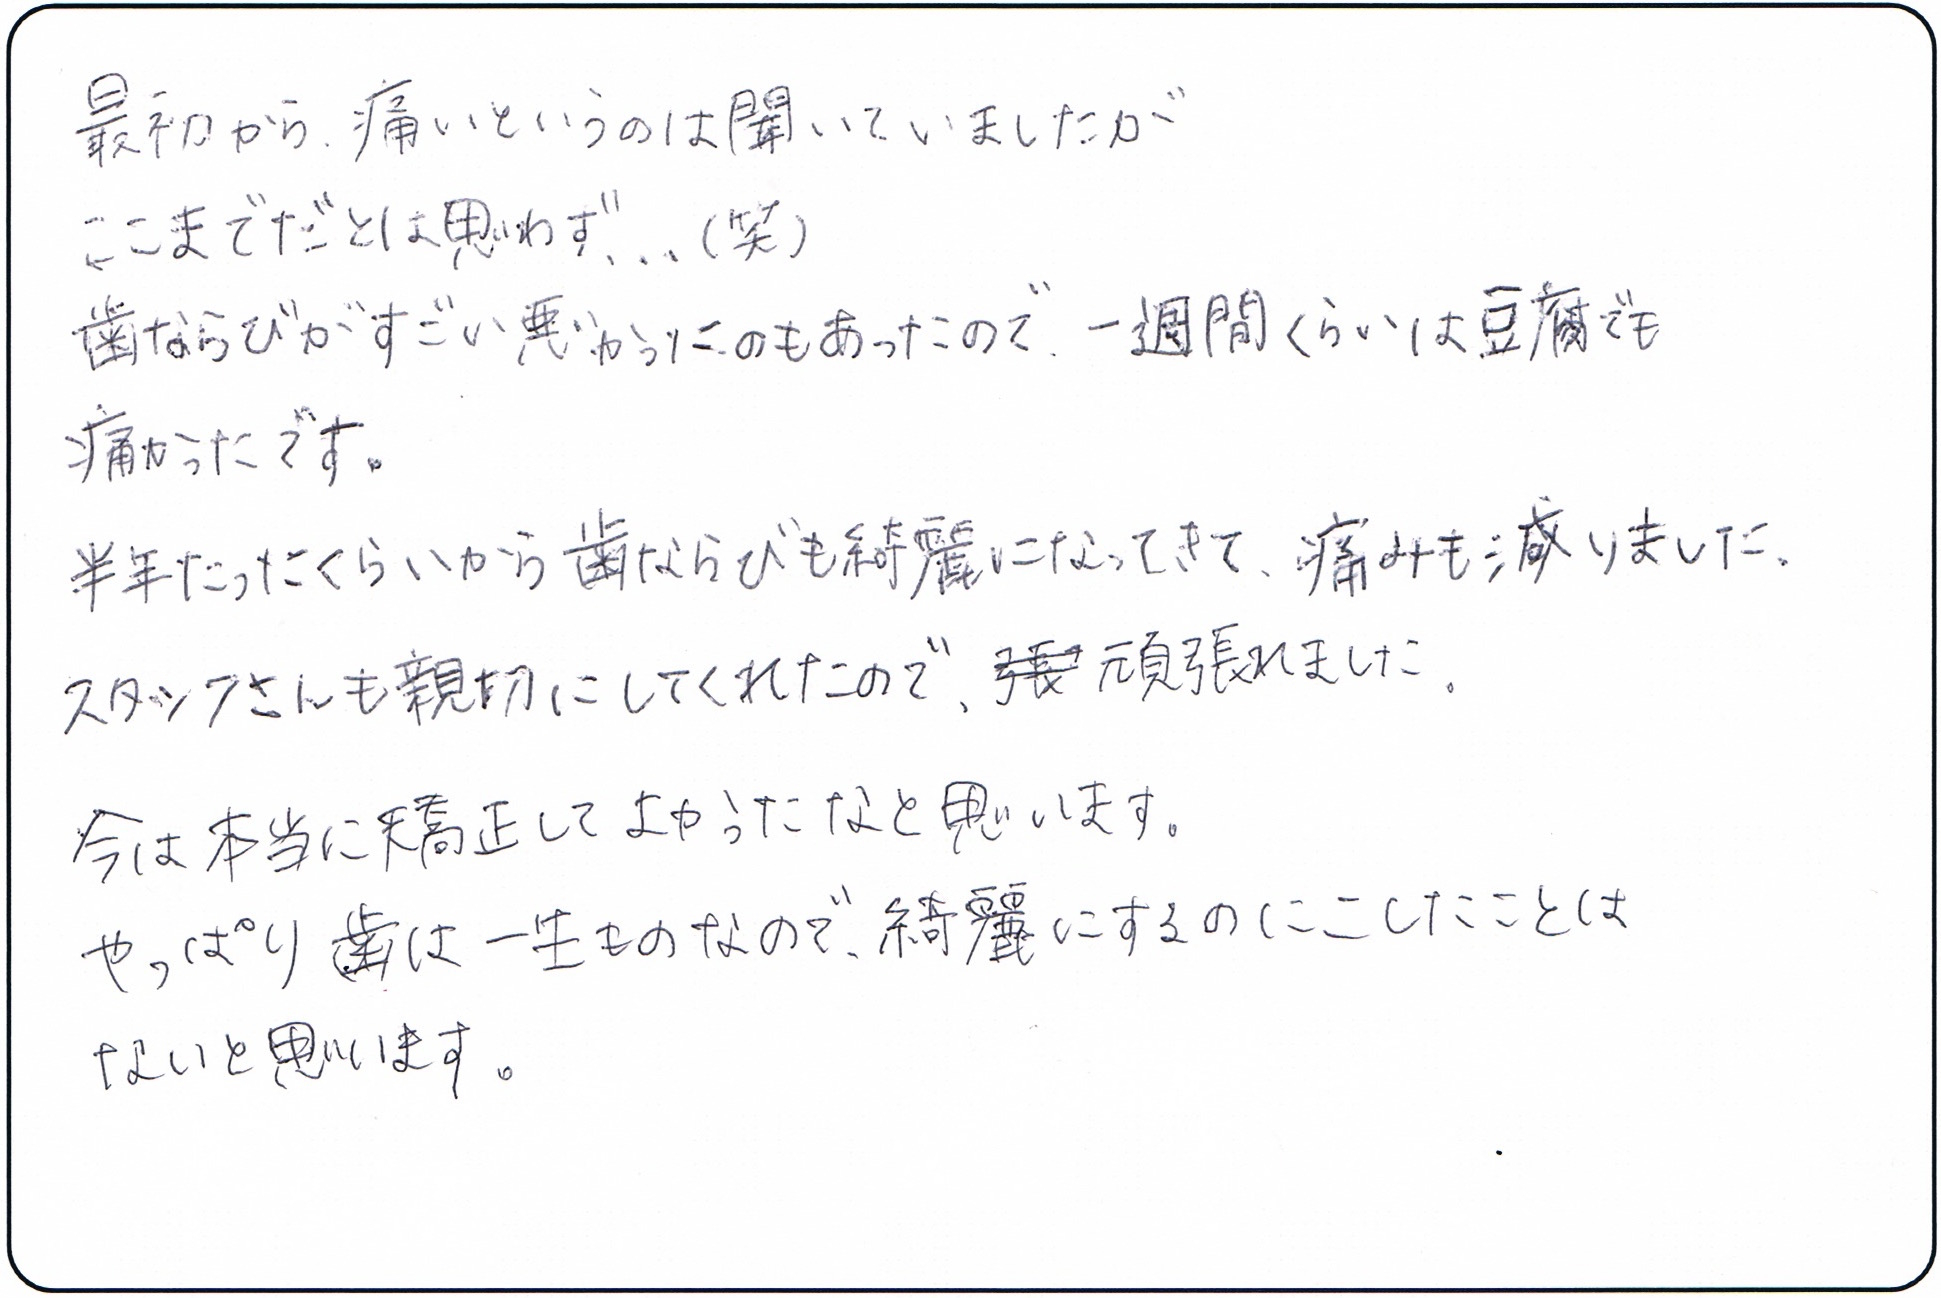 最初から、痛いというのは聞いていましたが
ここまでだとは思わず、...(笑)
歯ならびがすごい悪かったのもあったので、一週間くらいは豆腐でも
痛かったです。
半年たったくらいから歯ならびも綺麗になってきて、痛みも減りました。
スタッフさんも親切にしてくれたので、頑張れました。
今は本当に矯正してよかったなと思います。
やっぱり歯は一生ものなので、綺麗にするのにこしたことは
ないと思います。